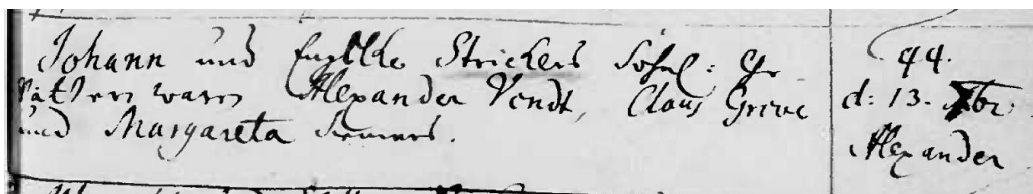 Johann und Engelke Strickers Sohn: Ge-
vattern waren Alexander Vendt, Claus Greve
und Margareta Siemers.
44.
d: 13. Xbr:
Alexander